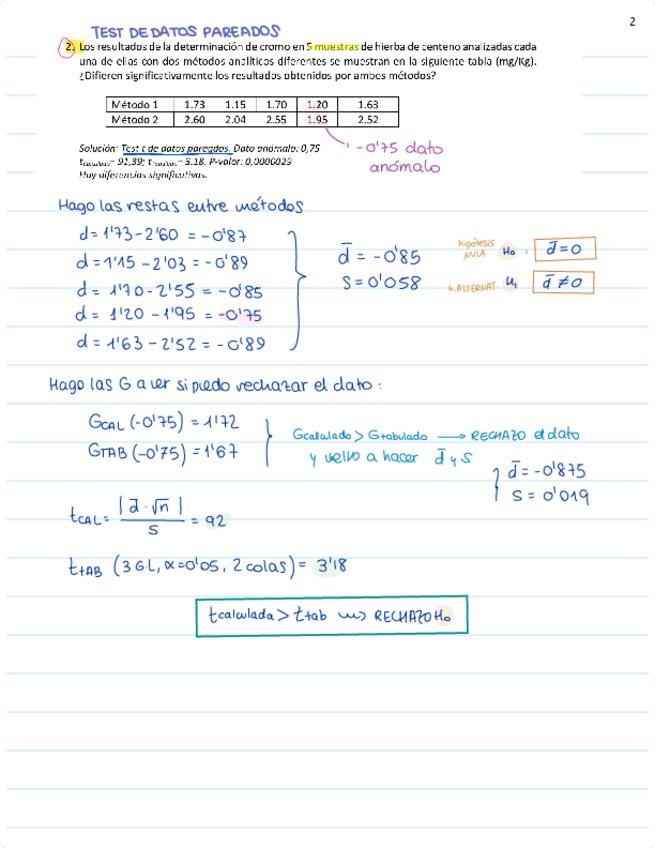 2
TEST DE DATOS PAREADOS
2. Los resultados de la determinación de cromo en 5 muestras de hierba de centeno analizadas cada
una de ellas con dos métodos analíticos diferentes se muestran en la siguiente tabla (mg/Kg).
¿Difieren significativamente los resultados obtenidos por ambos métodos?
Método 1 1.73 1.15 1.70 1.20 1.63
Método 2 2.60 2.04 2.55 1.95 2.52
Solución: Test t de datos pareados. Dato anómalo: 0,75
= 91,39; = 3.18. P-valor: 0,0000029
Hay diferencias significativas.
-0'75 dato
anómalo
Hago las restas entre métodos
d = 1'73 - 2'60 = -0'87
d = 1'15 - 2'03 = -0'89
d = 1'70 - 2'55 = -0'85
d = 1'20 - 1'95 = -0'75
d = 1'63 - 2'52 = -0'89
d̄ = -0'85
S = 0'058
hipótesis
NULA H₀ : d̄ = 0
h. ALTERNAT. H₁ d̄ ≠ 0
Hago las G a ver si puedo rechazar el dato :
GCAL (-0'75) = 1'72
GTAB (-0'75) = 1'67
Gcalculado > Gtabulado → RECHAZO el dato
y vuelvo a hacer d̄ y S
d̄ = -0'875
S = 0'019
tCAL = |d̄ · √n| / S = 92
tTAB (3 GL, α = 0'05, 2 colas) = 3'18
tcalculada > ttab ⇝ RECHAZO H₀